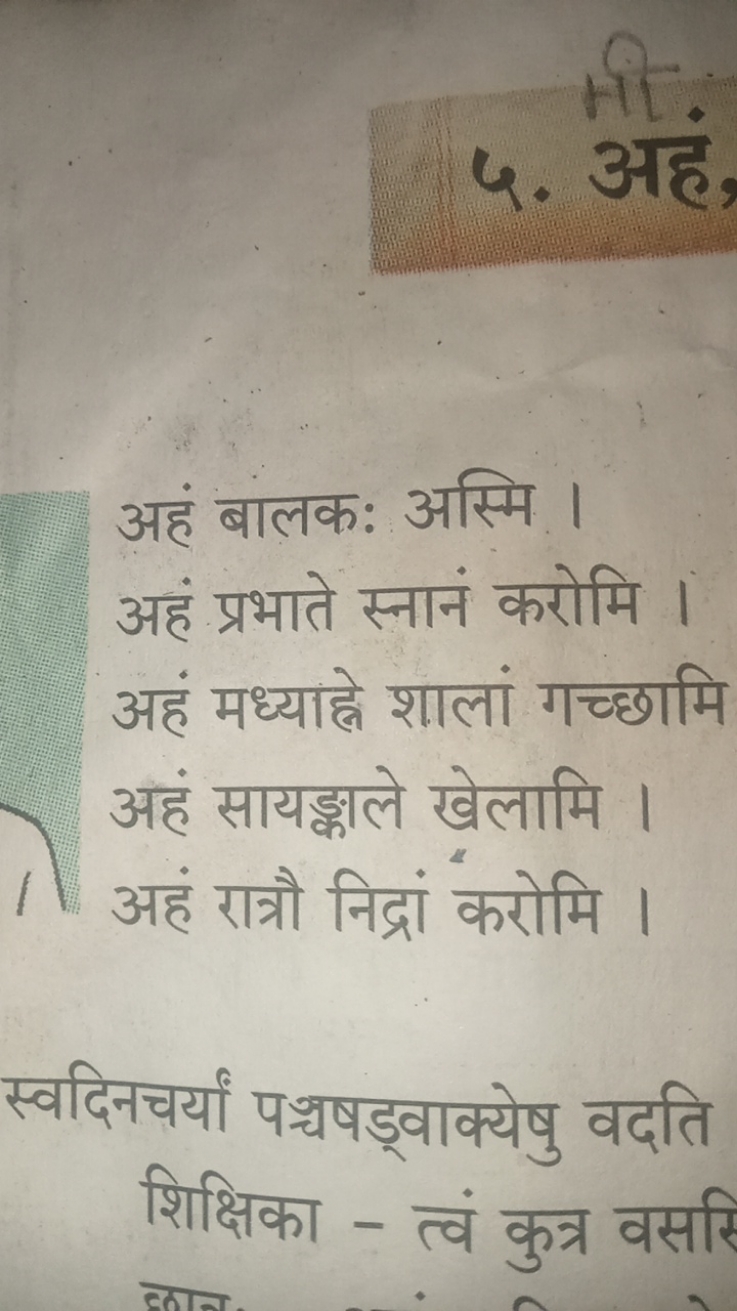 मी
५. अहं,
अहं बालकः अस्मि ।
अहं प्रभाते स्नानं करोमि ।
अहं मध्याह्ने शालां गच्छामि
अहं सायङ्काले खेलामि ।
अहं रात्रौ निद्रां करोमि ।
स्वदिनचर्यां पञ्चषड्वाक्येषु वदति
शिक्षिका – त्वं कुत्र वससि